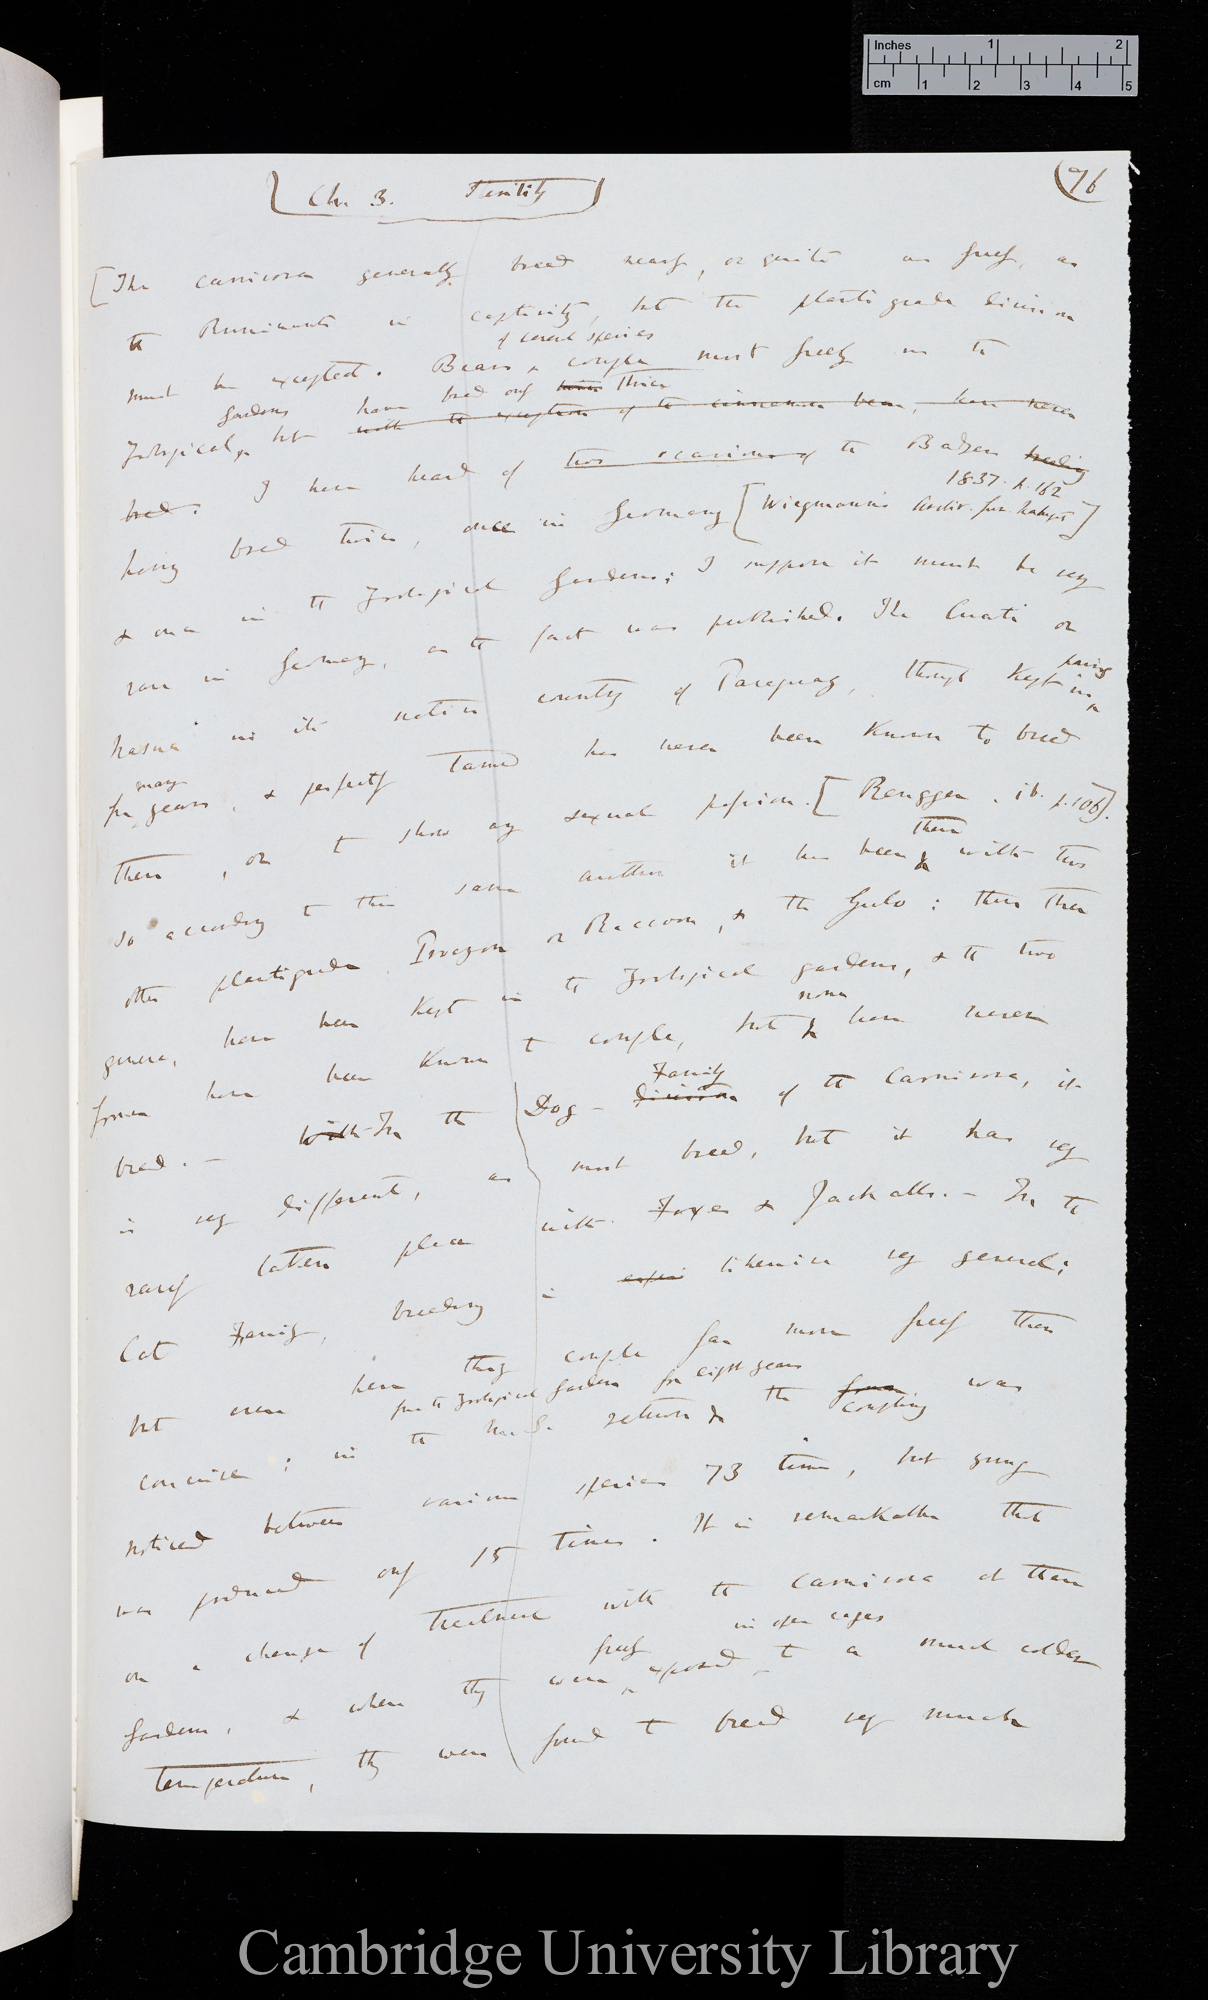 Ch. 3. Fertility
76
[The carnivora generally breed nearly, or quite as freely, as
the Ruminants in captivity, but the plantigrade division
must be excepted. Bears of several species couple most freely in the
Zoological Gardens, but have bred only thrice with the exception of the cinnamon bear, have never
bred. I have heard of two occasions of the Badger breeding
having bred twice, once in Germany [Wiegmann's Archiv. fur. Naturg 1837. p. 162]
& once in the Zoological Gardens; I suppose it must be very
rare in Germany, as the fact was published. The Cuati or
Nasua in its native country of Paraguay, though kept in pairs
for many years, & perfectly tamed has never been known to breed
there, or to show any sexual passion. [Rengger. ib. p. 106].
So according to this same author it has been there with two
other plantigrade Procyon or Raccoon, & the Gulo; these three
genera, have been kept in the Zoological gardens, & the two
former have been known to couple, but none have never
bred. — With In the Dog-division Family of the Carnivora, it
is very different, as most breed, but it has very
rarely taken place with Foxes & Jackalls. — In the
Cat Family, breeding is likewise very general;
but even here they couple far more freely than
conceive; in the M.S. return from the Zoological Gardens for eight years the coupling was
noticed between various species 73 times, but young
was produced only 15 times. It is remarkable that
on a change of treatment with the Carnivora at these
Gardens, & when they were freely exposed in open cages to a much colder
temperature, they were found to breed very much
Inches 1 2
cm 1 2 3 4 5
Cambridge University Library